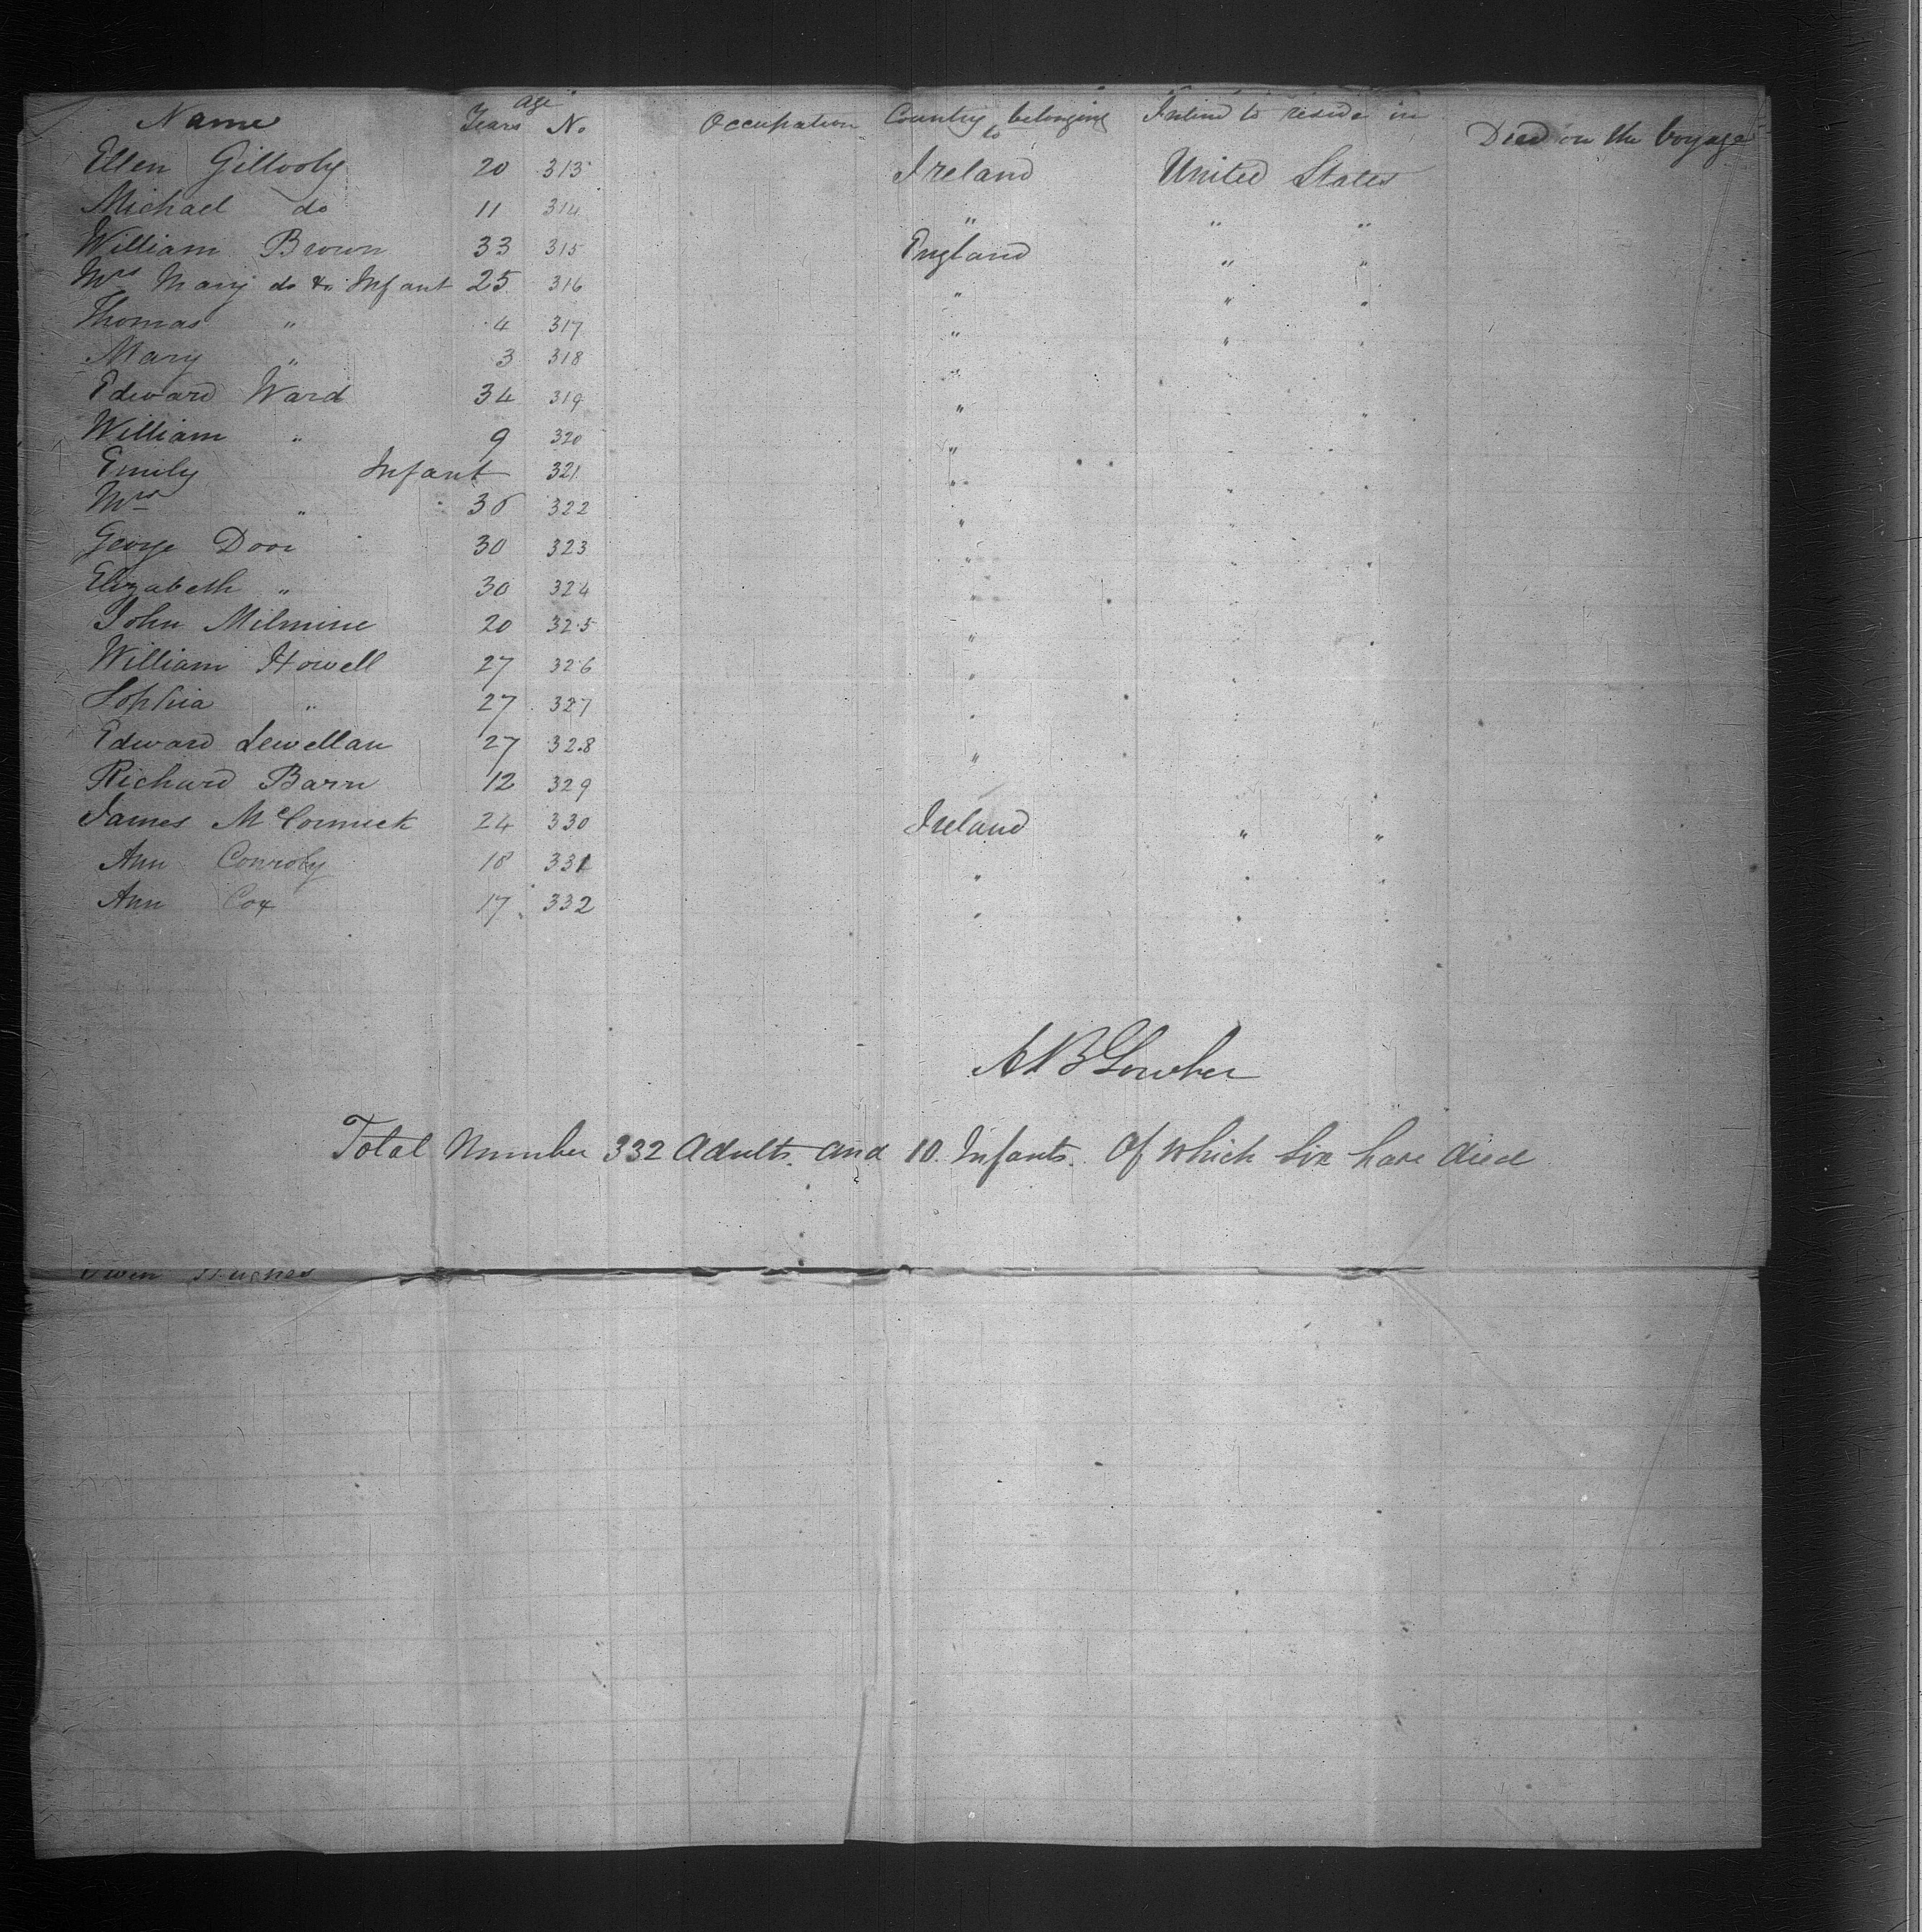 Name Age Years No. Occupation Country belonging to Intend to reside in Died on the Voyage
Ellen Gillooly 20 313 Ireland United States
Michael do 11 314 " " "
William Brown 33 315 England " "
Mrs Mary do & Infant 25 316 " " "
Thomas " 4 317 " " "
Mary " 3 318 " " "
Edward Ward 34 319 " " "
William " 9 320 " " "
Emily Infant 321 " " "
Mrs " 36 322 " "
George Door 30 323 " " "
Elizabeth " 30 324 "
John Milmine 20 325 " "
William Howell 27 326 " "
Sophia " 27 327 " " "
Edward Lewellan 27 328 "
Richard Barn 12 329 "
James McCormick 24 330 Ireland " "
Ann Conroly 18 331 " " "
Ann Cox 17 332 " " "
A B Lowber
Total Number 332 Adults and 10 Infants. Of which Six have died
Owen Hughes